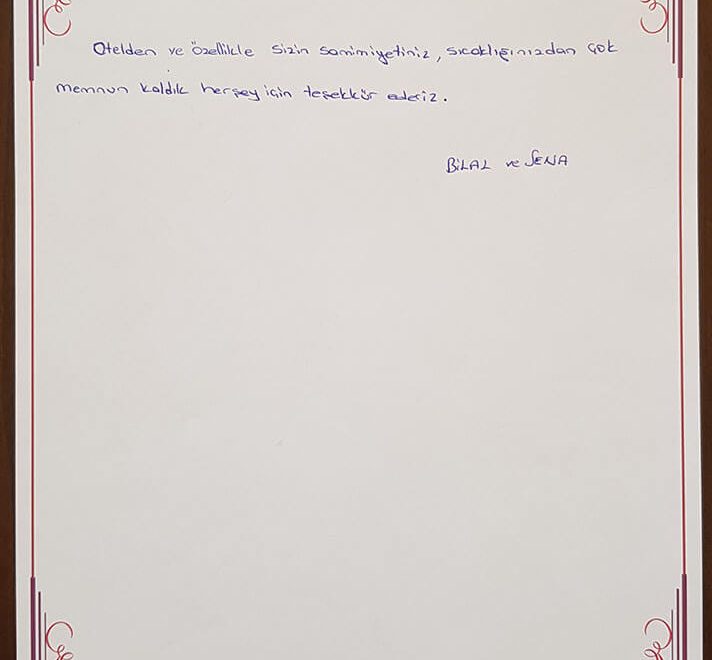 Otelden ve özellikle sizin samimiyetiniz, sıcaklığınızdan çok
memnun kaldık herşey için teşekkür ederiz.
BİLAL ve SENA